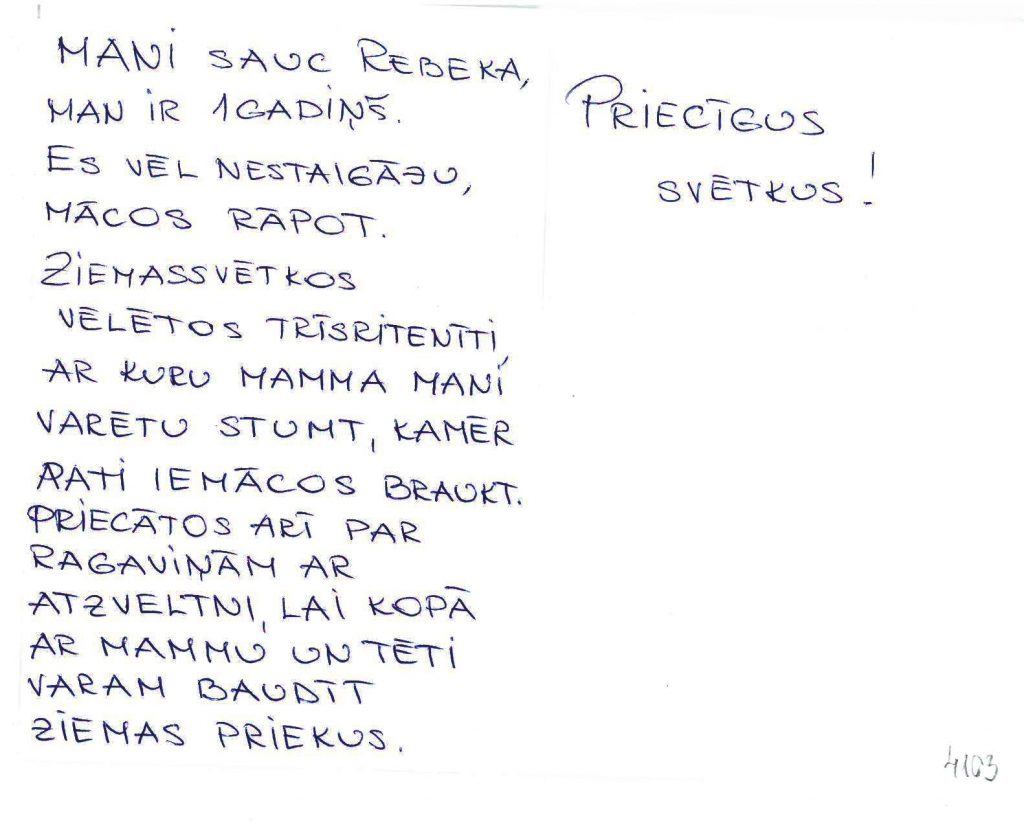 MANI SAUC REBEKA,
MAN IR 1 GADIŅŠ.
ES VĒL NESTAIGĀJU,
MĀCOS RĀPOT.
ZIEMASSVĒTKOS
VĒLĒTOS TRĪSRITENĪTI,
AR KURU MAMMA MANI
VARĒTU STUMT, KAMĒR
PATI IEMĀCOS BRAUKT.
PRIECĀTOS ARĪ PAR
RAGAVIŅĀM AR
ATZVELTNI, LAI KOPĀ
AR MAMMU UN TĒTI
VARAM BAUDĪT
ZIEMAS PRIEKUS.
PRIECĪGUS
SVĒTKUS!
4103